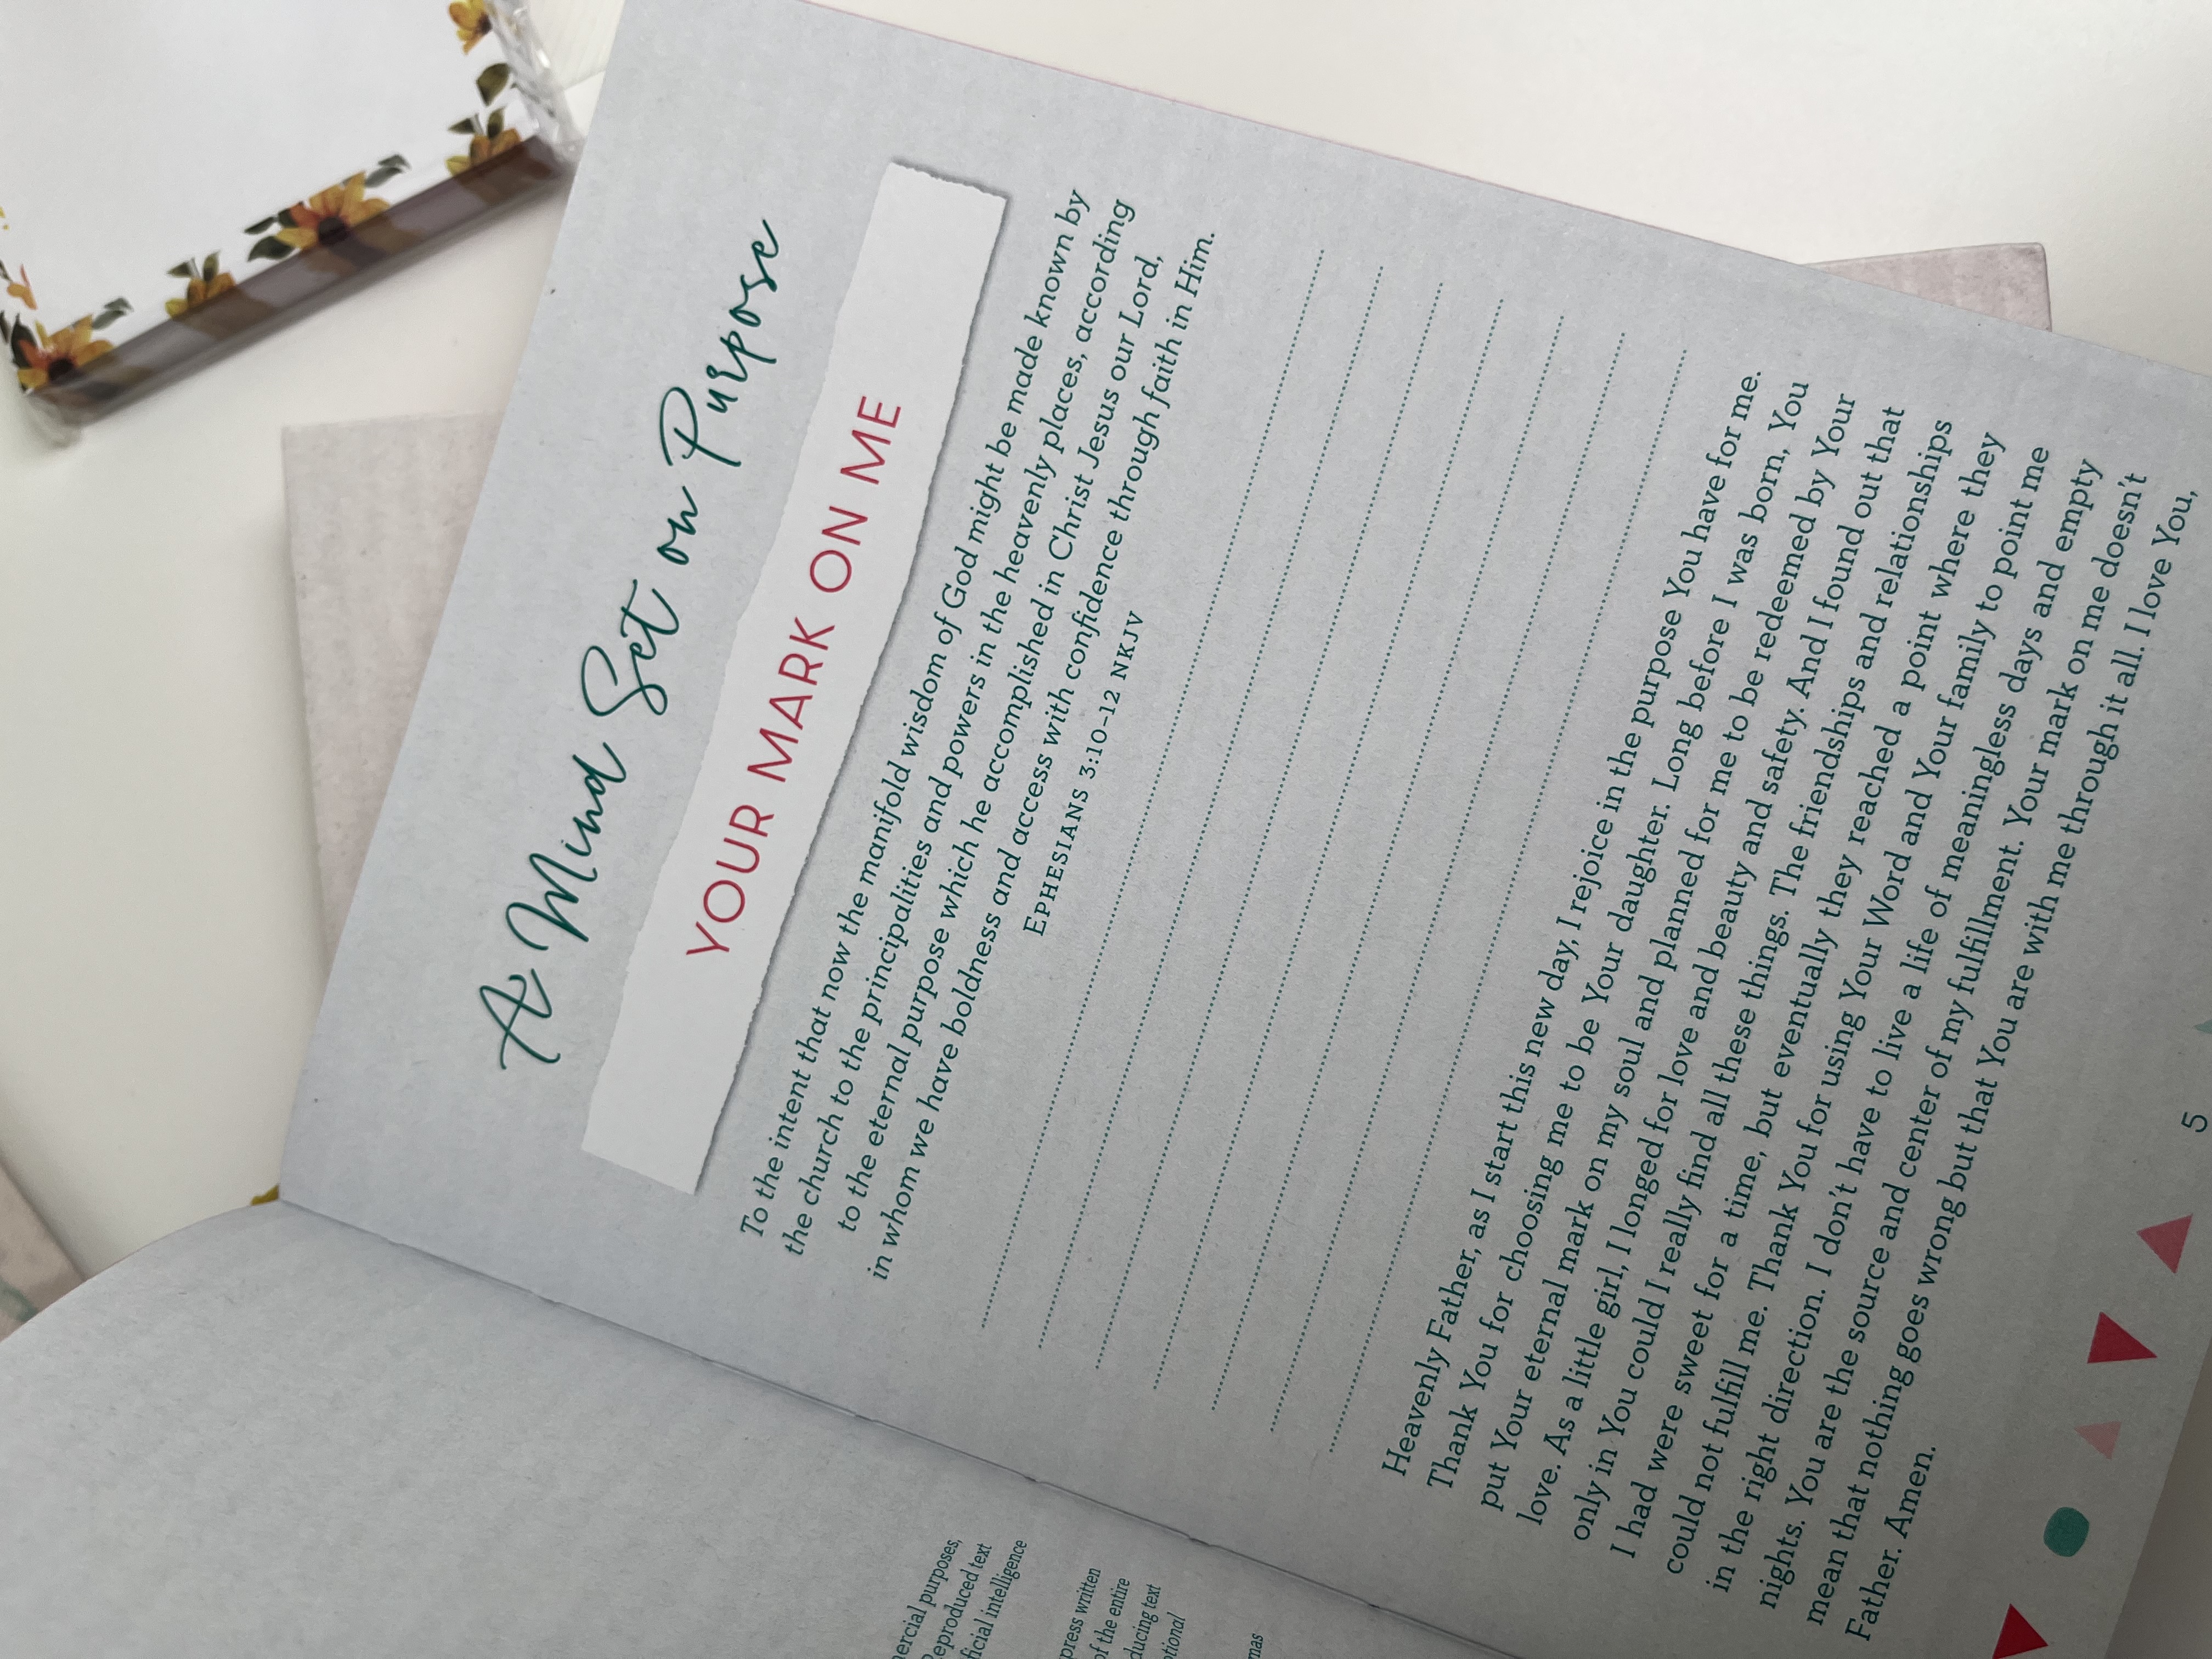 A Mind Set on Purpose
YOUR MARK ON ME
To the intent that now the manifold wisdom of God might be made known by
the church to the principalities and powers in the heavenly places, according
to the eternal purpose which he accomplished in Christ Jesus our Lord,
in whom we have boldness and access with confidence through faith in Him.
EPHESIANS 3:10–12 NKJV
Heavenly Father, as I start this new day, I rejoice in the purpose You have for me.
Thank You for choosing me to be Your daughter. Long before I was born, You
put Your eternal mark on my soul and planned for me to be redeemed by Your
love. As a little girl, I longed for love and beauty and safety. And I found out that
only in You could I really find all these things. The friendships and relationships
I had were sweet for a time, but eventually they reached a point where they
could not fulfill me. Thank You for using Your Word and Your family to point me
in the right direction. I don't have to live a life of meaningless days and empty
nights. You are the source and center of my fulfillment. Your mark on me doesn't
mean that nothing goes wrong but that You are with me through it all. I love You,
Father. Amen.
5
purposes,
Reproduced text
intelligence
written
of the entire
text